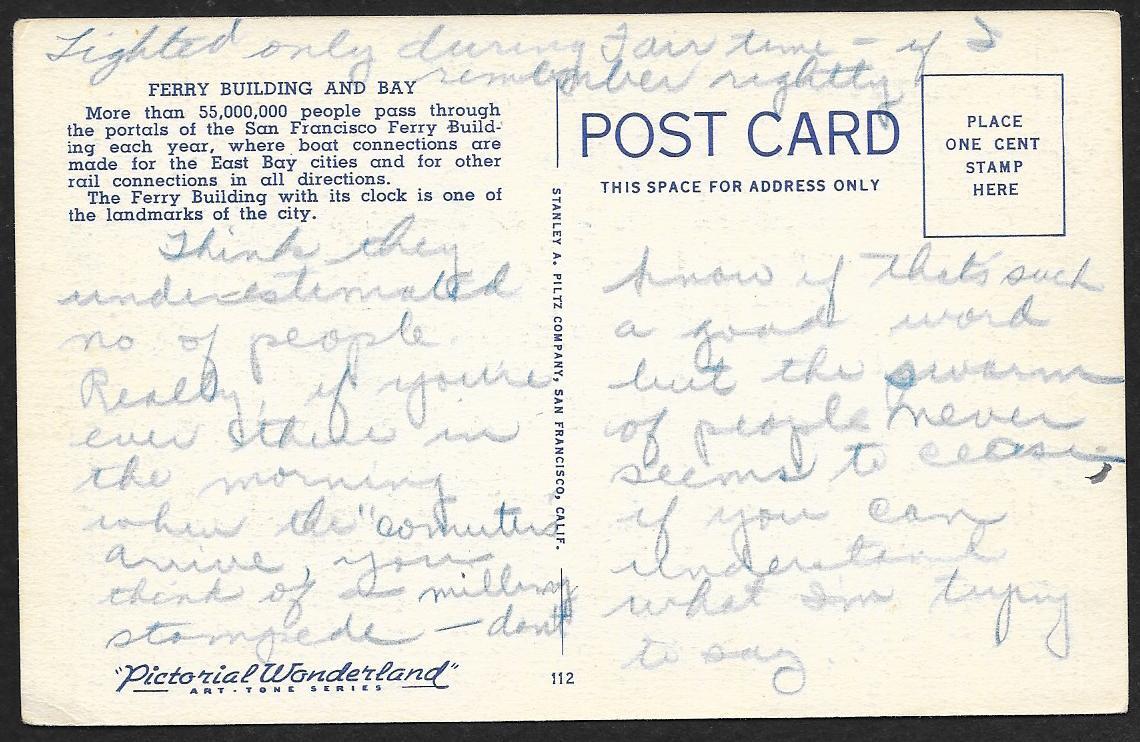 Lighted only during Fair time - if I
remember rightly
FERRY BUILDING AND BAY
More than 55,000,000 people pass through
the portals of the San Francisco Ferry Build-
ing each year, where boat connections are
made for the East Bay cities and for other
rail connections in all directions.
The Ferry Building with its clock is one of
the landmarks of the city.
Think they
underestimated
no of people.
Really, if you're
ever there in
the morning
when the "comuters
arrive, you
think of a milling
stampede - don't
"Pictorial Wonderland"
ART-TONE SERIES
STANLEY A. PILTZ COMPANY, SAN FRANCISCO, CALIF.
112
POST CARD
THIS SPACE FOR ADDRESS ONLY
PLACE
ONE CENT
STAMP
HERE
know if that's such
a good word
but the swarm
of people never
seems to cease,
if you can
understand
what I'm trying
to say.